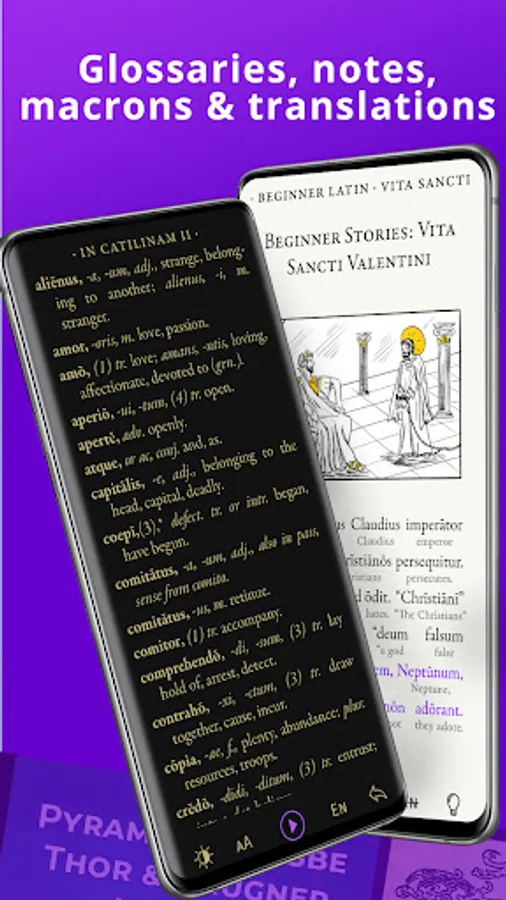 Glossaries, notes,
macrons & translations
· IN CATILINAM II ·
aliēnus, -a, -um, adj., strange, belong-
ing to another; alienus, -i, m.
stranger.
amor, -oris, m. love, passion.
amō, (1) tr. love; amans, -ntis, loving,
affectionate, devoted to (gen.).
aperiō, -ui, -tum, (4) tr. open.
apertē, adv. openly.
atque, or ac, conj. and, as.
capitālis, -e, adj., belonging to the
head, capital, deadly.
coepī,(3), defect. tr. or intr. began,
have begun.
comitātus, -a, -um, adj., also in pass,
sense from comito.
comitātus, -us, m. retinue.
comitor, (1) tr. accompany.
comprehendō, -di, -sum, (3) tr. lay
hold of, arrest, detect.
contrahō, -xi, -ctum, (3) tr. draw
together, cause, incur.
cōpia, -ae, f., plenty, abundance; plur.
resources, troops.
crēdō, -didi, -ditum, (3) tr. entrust;
AA
EN
· BEGINNER LATIN · VITA SANCTI
BEGINNER STORIES: VITA
SANCTI VALENTINI
Claudius imperātor
Claudius emperor
persequitur.
persecutes.
ōdit. "Christiānī"
hates. "The Christians"
"deum falsum
"a god false
Neptūnum,
Neptune,
nōn adōrant.
they adore.
THOR &